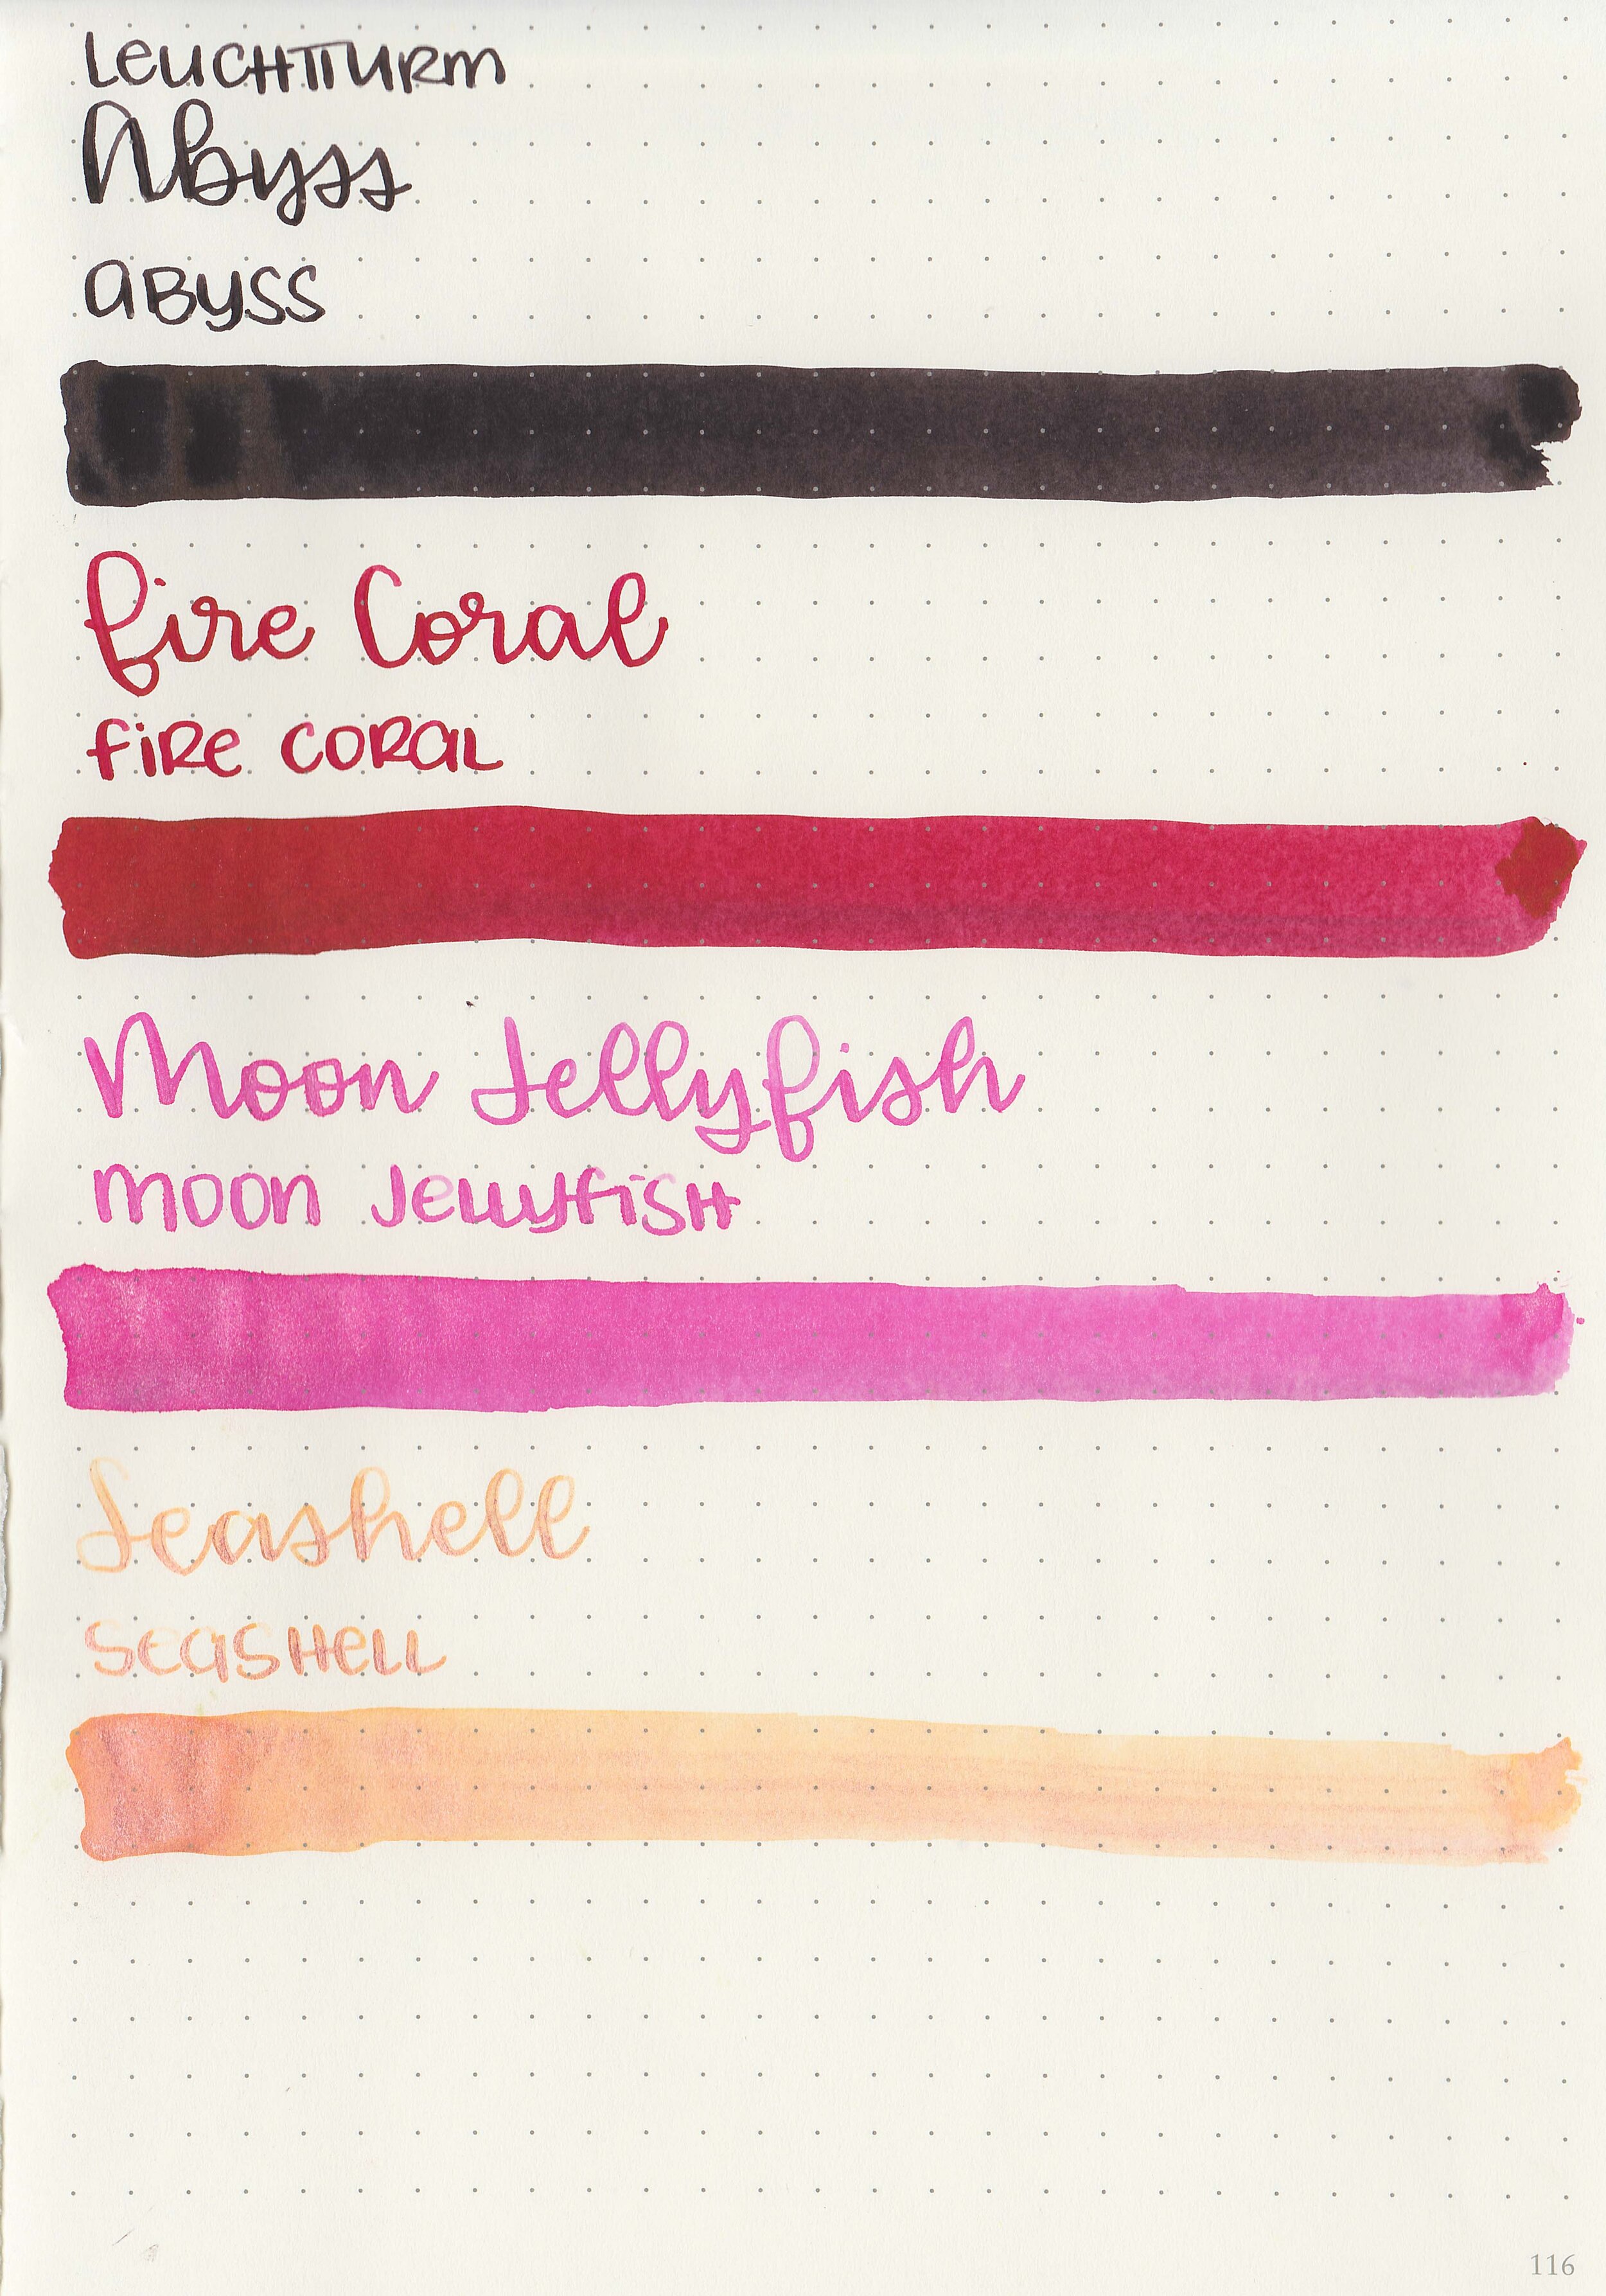 LEUCHTTURM
Abyss
ABYSS
Fire Coral
FIRE CORAL
Moon Jellyfish
MOON JELLYFISH
Seashell
SEASHELL
116